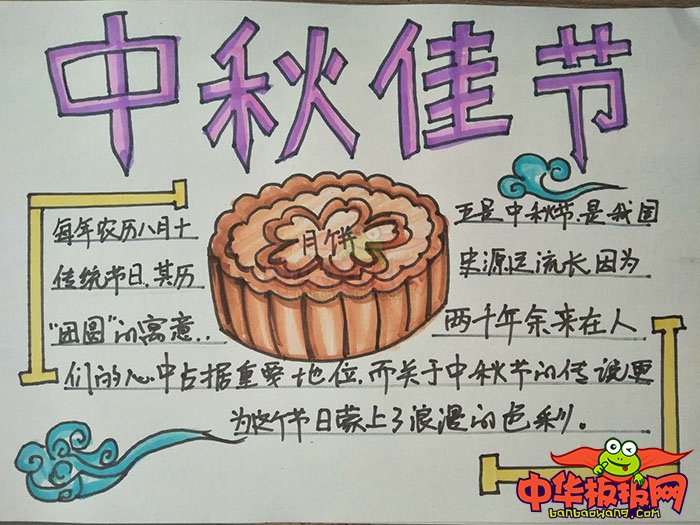 中秋佳节
月饼
每年农历八月十五是中秋节.是我国
传统节日.其历史源远流长.因为
"团圆"的寓意..两千年余来在人
们的心中占据重要地位.而关于中秋节的传说更
为这个节日蒙上了浪漫的色彩.
中华板报网
banbaowang.com